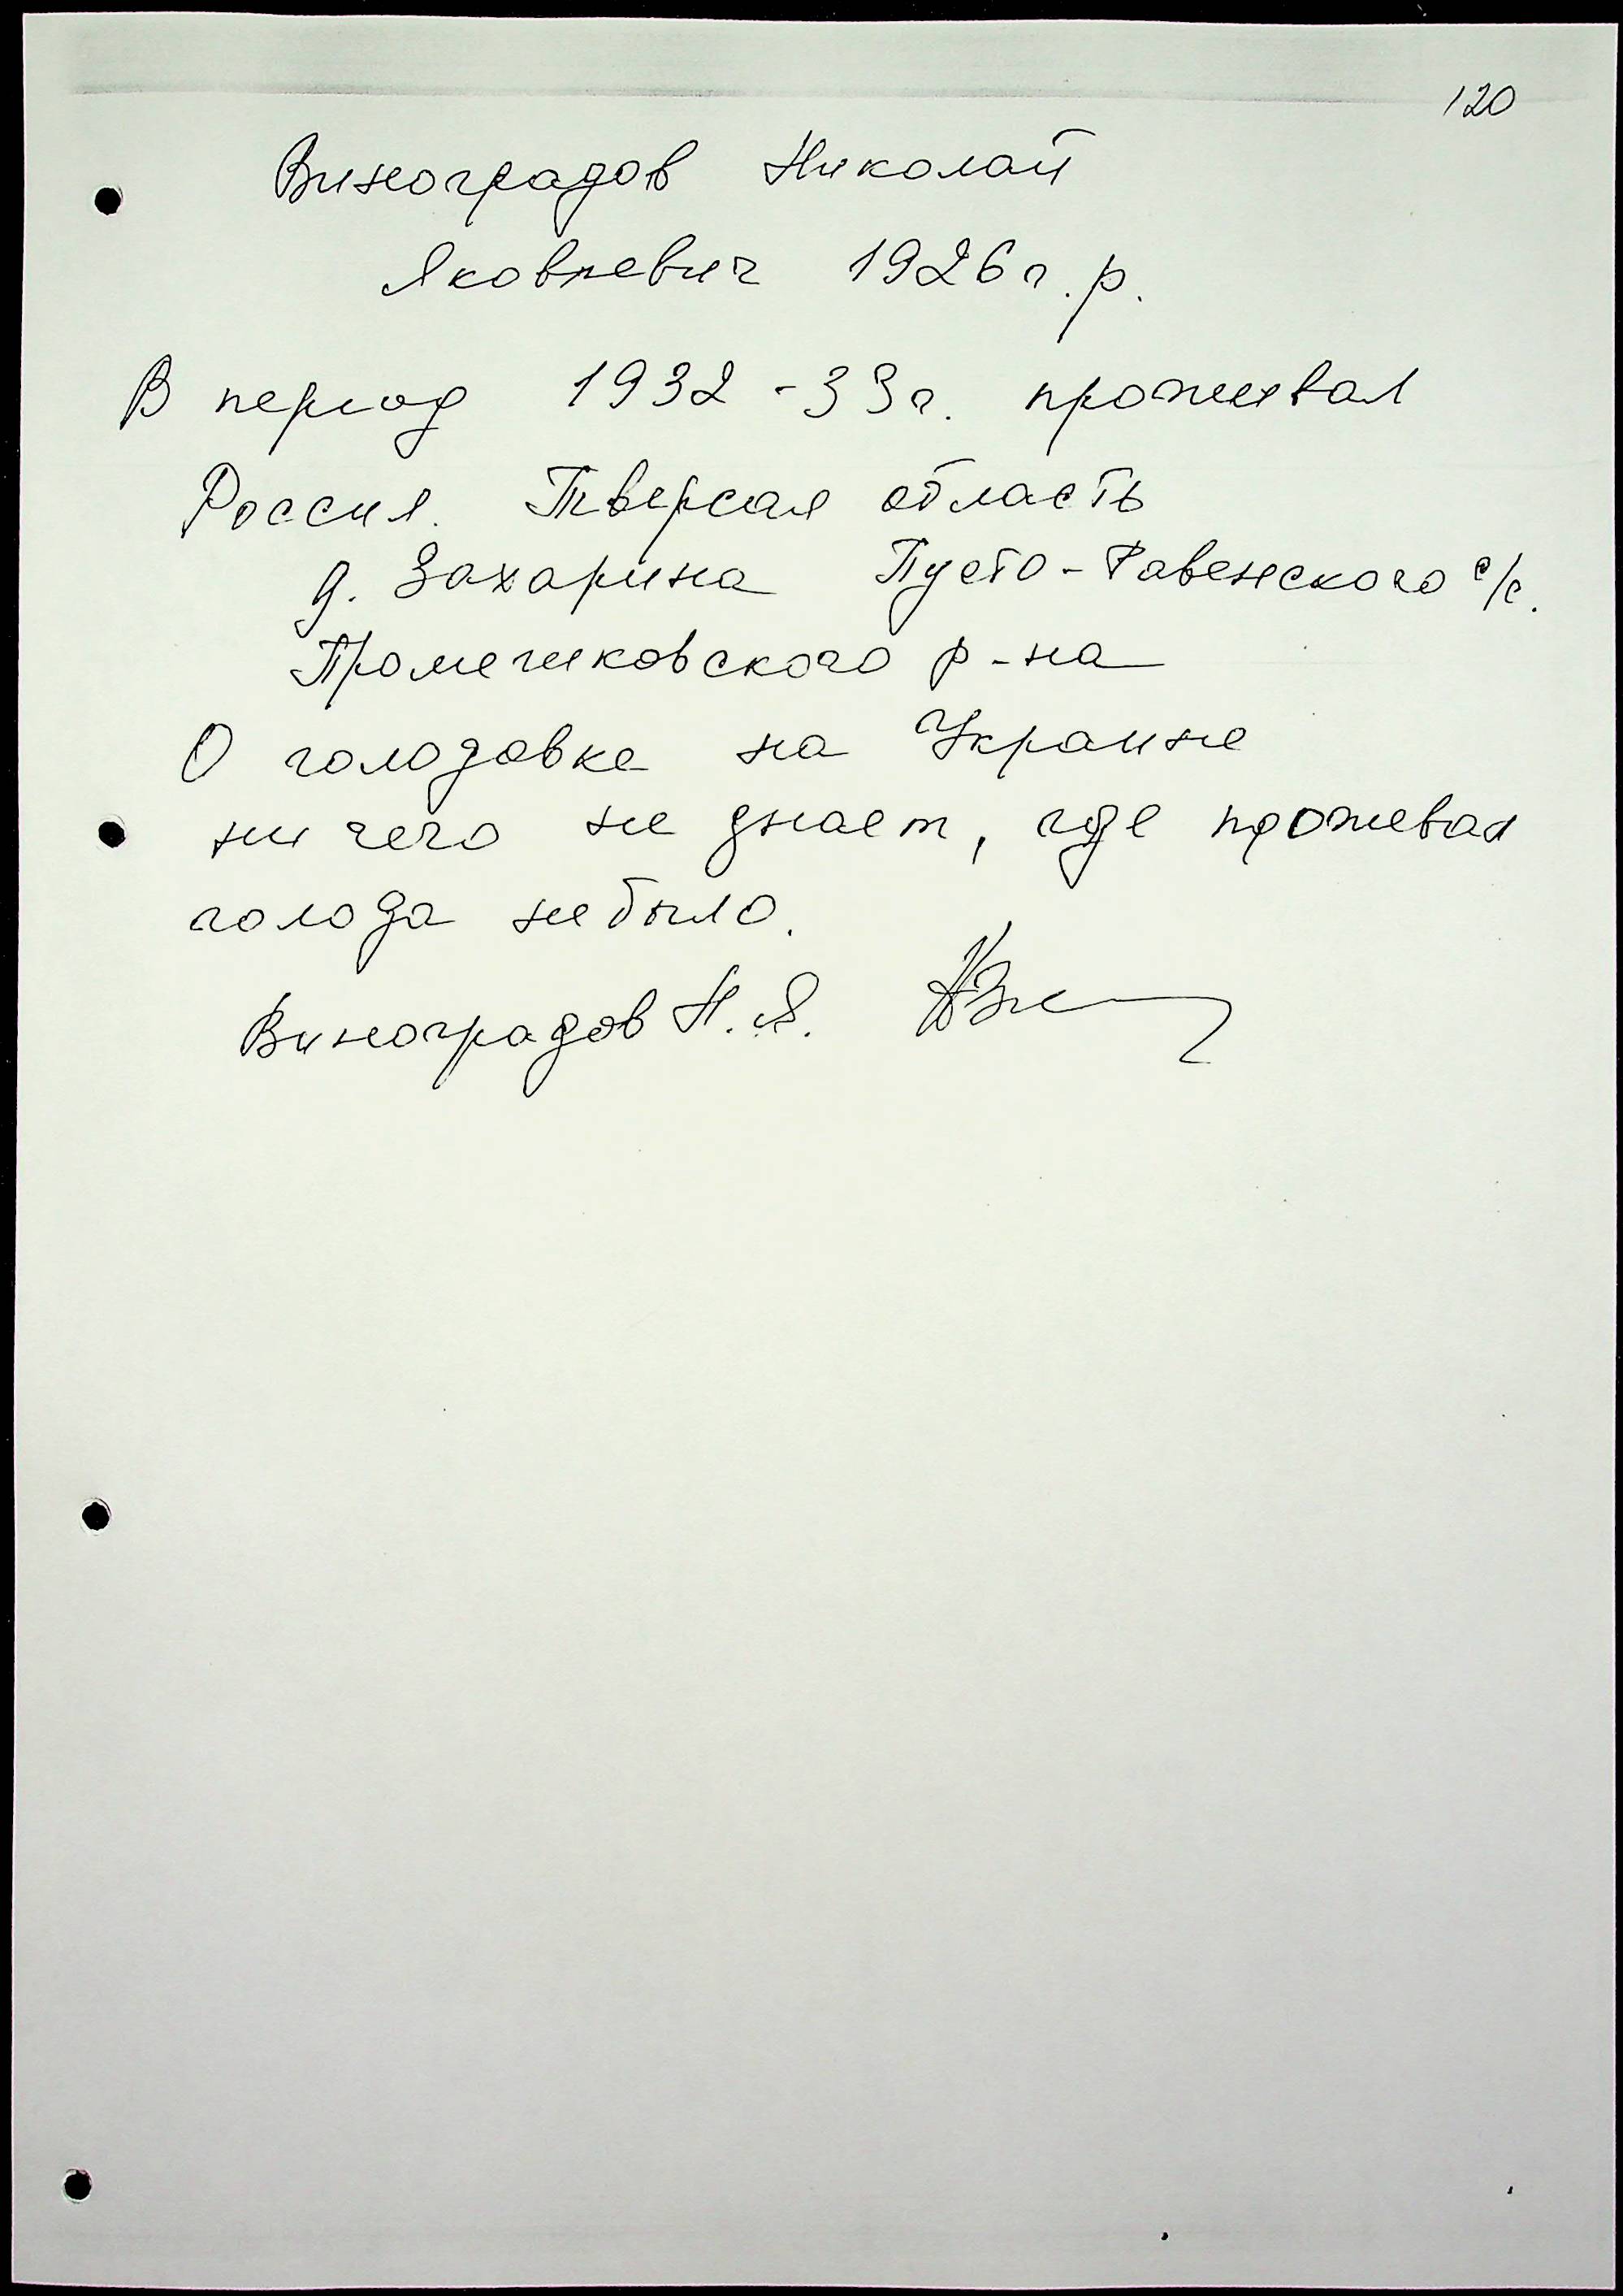 120
Виноградов Николай
Яковлевич 1926 г. р.
В период 1932 - 33 г. проживал
Россия. Тверская область
д. Захарина Пусто-Равенского с/с.
Промечиковского р-на
О голодовке на Украине
ни чего не знает, где проживал
голода не было.
Виноградов Н. Я.